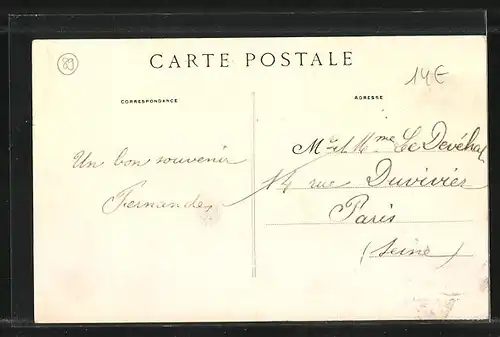 89
CARTE POSTALE
14€
CORRESPONDANCE
ADRESSE
Un bon souvenir
Fernande
Mr et Mme Le Devéhat
14 rue Duvivier
Paris
(Seine)